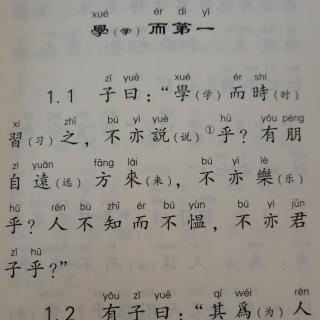 xué ér dì yī
學（学）而第一
zǐ yuē xué ér shí
1.1 子曰：“學（学）而時（时）
xí zhī bú yì yuè hū yǒu péng
習（习）之，不亦説（说）①乎？有朋
zì yuǎn fāng lái bú yì lè
自遠（远）方來（来），不亦樂（乐）
hū rén bù zhī ér bú yùn bú yì jūn
乎？人不知而不愠，不亦君
zǐ hū
子乎？”
yǒu zǐ yuē qí wéi rén
1.2 有子曰：“其爲（为）人